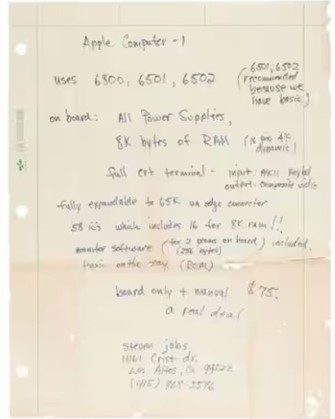 Apple Computer-1
uses 6800, 6501, 6502
(6501, 6502
recommended
because we
have basic)
on board: All Power Supplies,
8K bytes of RAM (16 pin 4K
dynamic)
full crt terminal - input: ASCII Keybd
output: composite video
fully expandable to 65K via edge connector
58 ic's which includes 16 for 8K ram!!
monitor software (for 2 proms on board) included.
(256 bytes)
basic on the way (ROM)
board only + manual $75.
a real deal
steven jobs
11161 Crist dr.
Los Altos, Ca
(415)